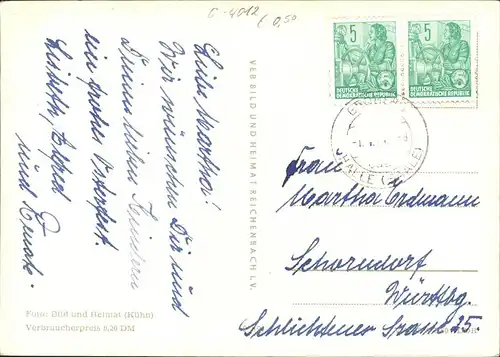 C-4012
(0,50
Liebe Martha!
Wir wünschen Dir und
Deinen lieben Kindern
ein frohes Osterfest.
Lisbeth, Alfred
und Renate.
Foto: Bild und Heimat (Kühn)
Verbraucherpreis 0,20 DM
VEB BILD UND HEIMAT REICHENBACH I. V.
5
DEUTSCHE
DEMOKRATISCHE REPUBLIK
5
DEUTSCHE
DEMOKRATISCHE REPUBLIK
HALLE (SAALE)
Frau
Martha Erdmann
Schorndorf
Württbg.
Schlichtener Strasse 25.